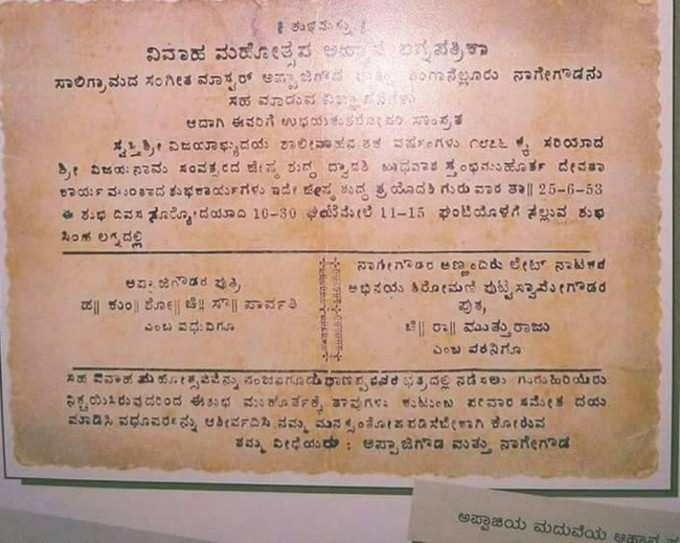 || ಶುಭಮಸ್ತು ||
ವಿವಾಹ ಮಹೋತ್ಸವ ಆಹ್ವಾನ ಲಗ್ನಪತ್ರಿಕಾ
ಸಾಲಿಗ್ರಾಮದ ಸಂಗೀತ ಮಾಸ್ಟರ್ ಅಪ್ಪಾಜಿಗೌಡ ಮತ್ತು ನಾಗೇಗೌಡನು
ಸಹ ಮಾಡುವ ವಿಜ್ಞಾಪನೆಗಳು
ಆದಾಗಿ ಈವರಿಗೆ ಉಭಯಕುಶಲೋಪರಿ ಸಾಂಪ್ರತ
ಸ್ವಸ್ತಿಶ್ರೀ ವಿಜಯಾಭ್ಯುದಯ ಶಾಲೀವಾಹನ ಶಕ ವರ್ಷಂಗಳು ೧೮೭೬ ಕ್ಕೆ ಸರಿಯಾದ
ಶ್ರೀ ವಿಜಯನಾಮ ಸಂವತ್ಸರದ ಜೇಷ್ಠ ಶುದ್ಧ ದ್ವಾದಶಿ ಬುಧವಾರ ಸ್ತಂಭಮುಹೂರ್ತ ದೇವತಾ
ಕಾರ್ಯ ಮುಂತಾದ ಶುಭಕಾರ್ಯಗಳು ಇದೇ ಜೇಷ್ಠ ಶುದ್ಧ ತ್ರಯೋದಶಿ ಗುರುವಾರ ತಾ|| 25-6-53
ಈ ಶುಭ ದಿವಸ ಸೂರ್ಯೋದಯಾದಿ 10-30 ಘಂಟೆಮೇಲೆ 11-15 ಘಂಟೆಯೊಳಗೆ ಸಲ್ಲುವ ಶುಭ
ಸಿಂಹ ಲಗ್ನದಲ್ಲಿ
ಅಪ್ಪಾಜಿಗೌಡರ ಪುತ್ರಿ
ಚಿ|| ಸೌ|| ಪಾರ್ವತಿ
ಎಂಬ ವಧುವಿಗೂ
ನಾಗೇಗೌಡರ ಅಣ್ಣಂದಿರು ಲೇಟ್ ನಾಟಕದ
ಅಭಿನಯ ಶಿರೋಮಣಿ ಪುಟ್ಟಸ್ವಾಮೇಗೌಡರ
ಪುತ್ರ,
ಚಿ|| ರಾ|| ಮುತ್ತುರಾಜು
ಎಂಬ ವರನಿಗೂ
ಸಹ ವಿವಾಹ ಮಹೋತ್ಸವವನ್ನು ನಂಜನಗೂಡು ಛತ್ರದಲ್ಲಿ ನಡೆಸಲು ಗುರುಹಿರಿಯರು
ನಿಶ್ಚಯಿಸಿರುವುದರಿಂದ ಈ ಶುಭ ಮುಹೂರ್ತಕ್ಕೆ ತಾವುಗಳು ಕುಟುಂಬ ಪರಿವಾರ ಸಮೇತ ದಯ
ಮಾಡಿಸಿ ವಧೂವರರನ್ನು ಆಶೀರ್ವದಿಸಿ ನಮ್ಮ ಮನಸ್ಸಂತೋಷ ಪಡಿಸಬೇಕಾಗಿ ಕೋರುವ
ತಮ್ಮ ವಿಧೇಯರು : ಅಪ್ಪಾಜಿಗೌಡ ಮತ್ತು ನಾಗೇಗೌಡ
ಅಪ್ಪಾಜಿಯ ಮದುವೆಯ